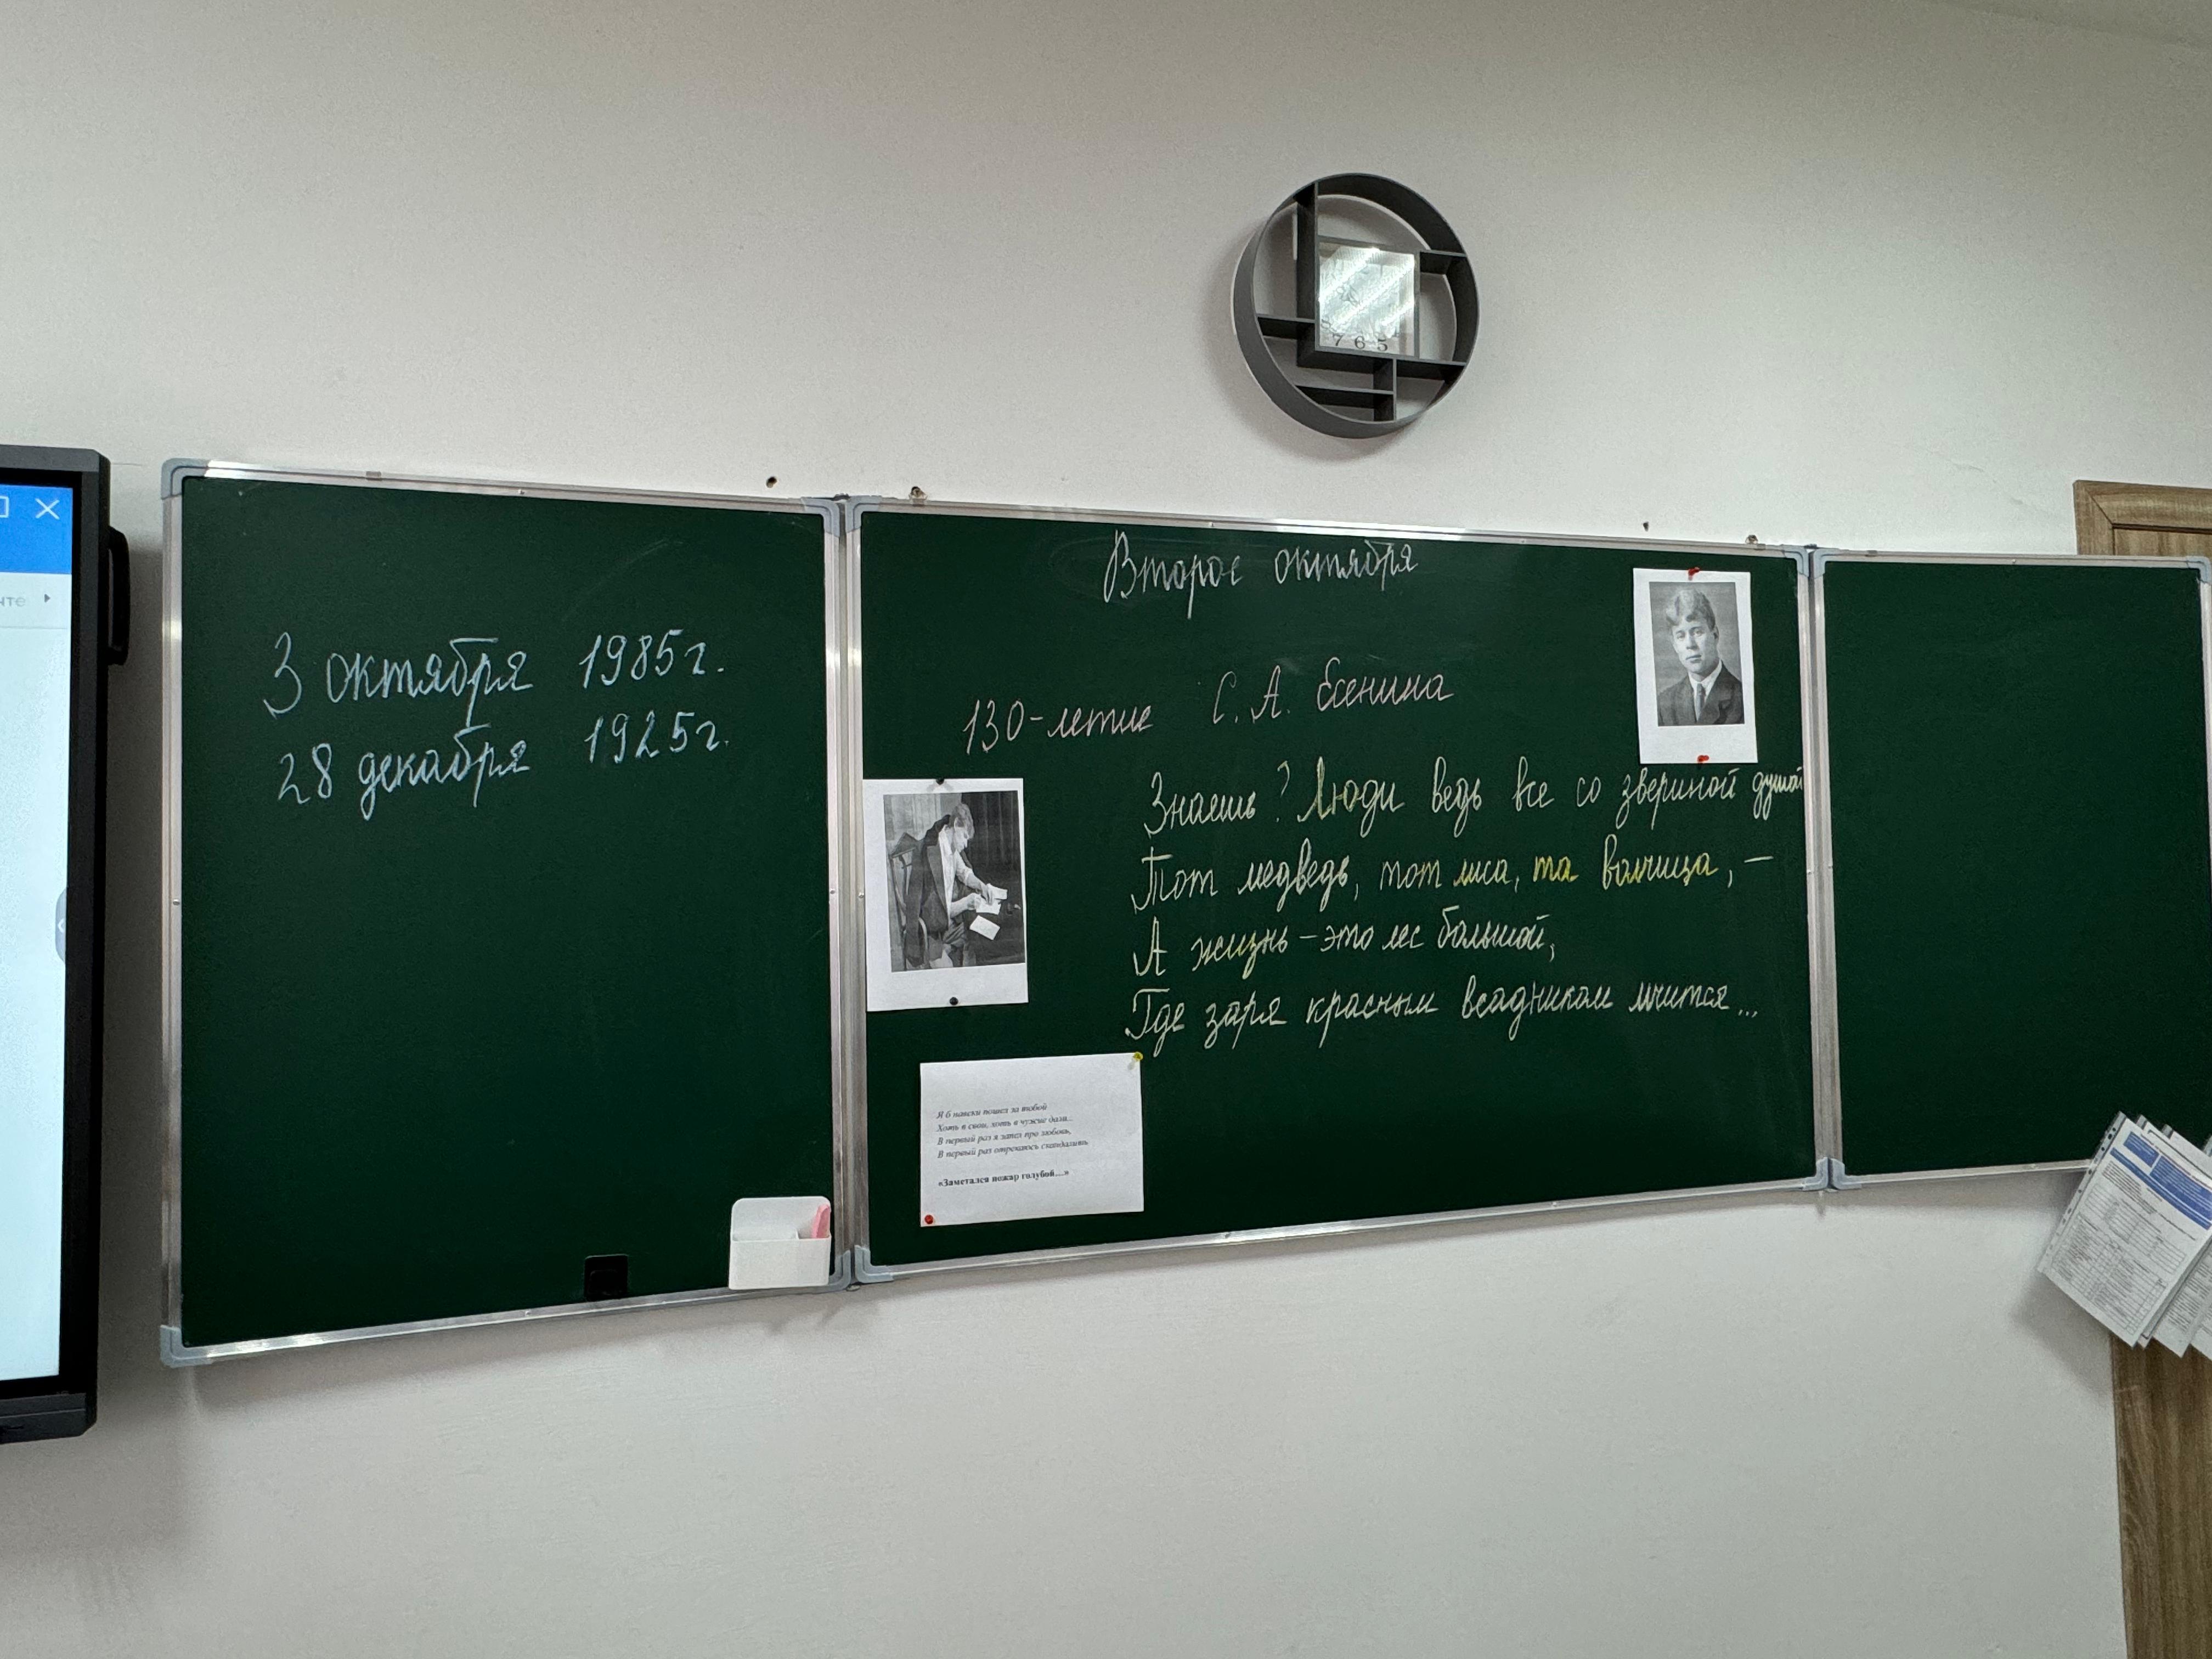 3 октября 1985г.
28 декабря 1925г.
Второе октября
130-летие С. А. Есенина
Знаешь? Люди ведь все со звериной душой
Тот медведь, тот лиса, та волчица, —
А жизнь – это лес большой,
Где заря красным всадником мчится...
Я б навеки пошел за тобой
Хоть в свои, хоть в чужие дали...
В первый раз я запел про любовь,
В первый раз отрекаюсь скандалить.
«Заметался пожар голубой....»
7 6 5